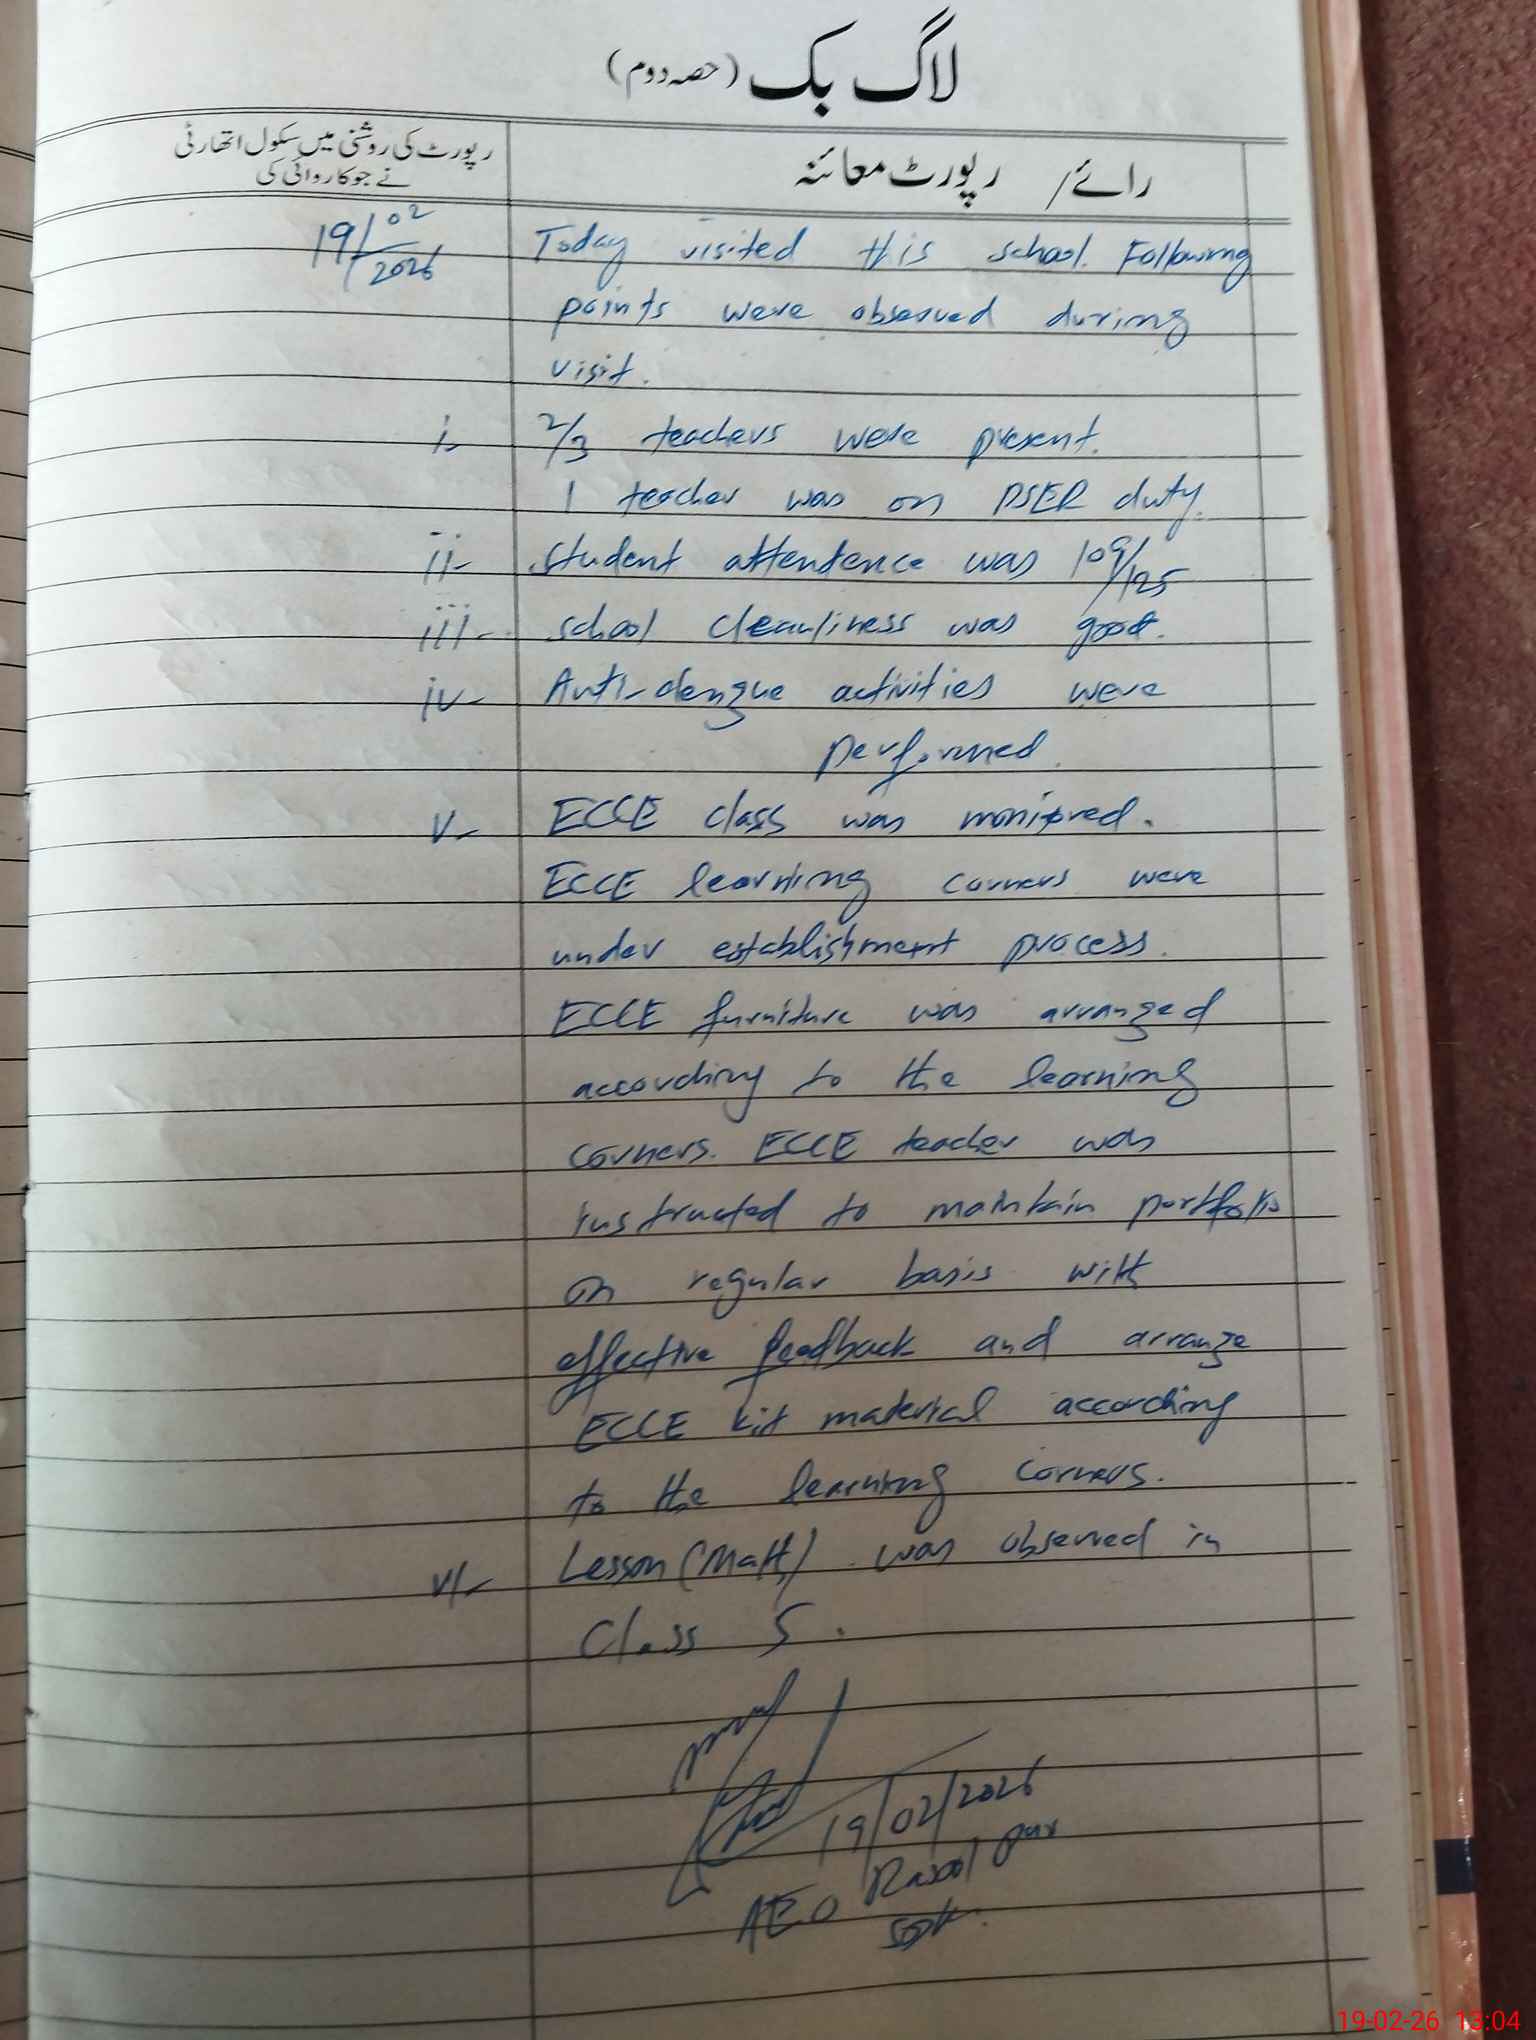 لاگ بک (حصہ دوم)
رائے/ رپورٹ معائنہ
رپورٹ کی روشنی میں سکول اتھارٹی
نے جو کاروائی کی
19/02/2026
Today visited this school. Following
points were observed during
visit.
i- 2/3 teachers were present.
1 teacher was on PSER duty.
ii- Student attendence was 109/125
iii- school cleanliness was good.
iv- Anti-dengue activities were
performed.
v- ECCE class was moniored.
ECCE learning corners were
under establishment process.
ECCE furniture was arranged
according to the learning
corners. ECCE teacher was
instructed to maintain portfolio
on regular basis with
effective feedback and arrange
ECCE kit material according
to the learning corners.
vi- Lesson (Math) was observed in
Class 5.
19/02/2026
AEO Rasool pur
19-02-26 13:04